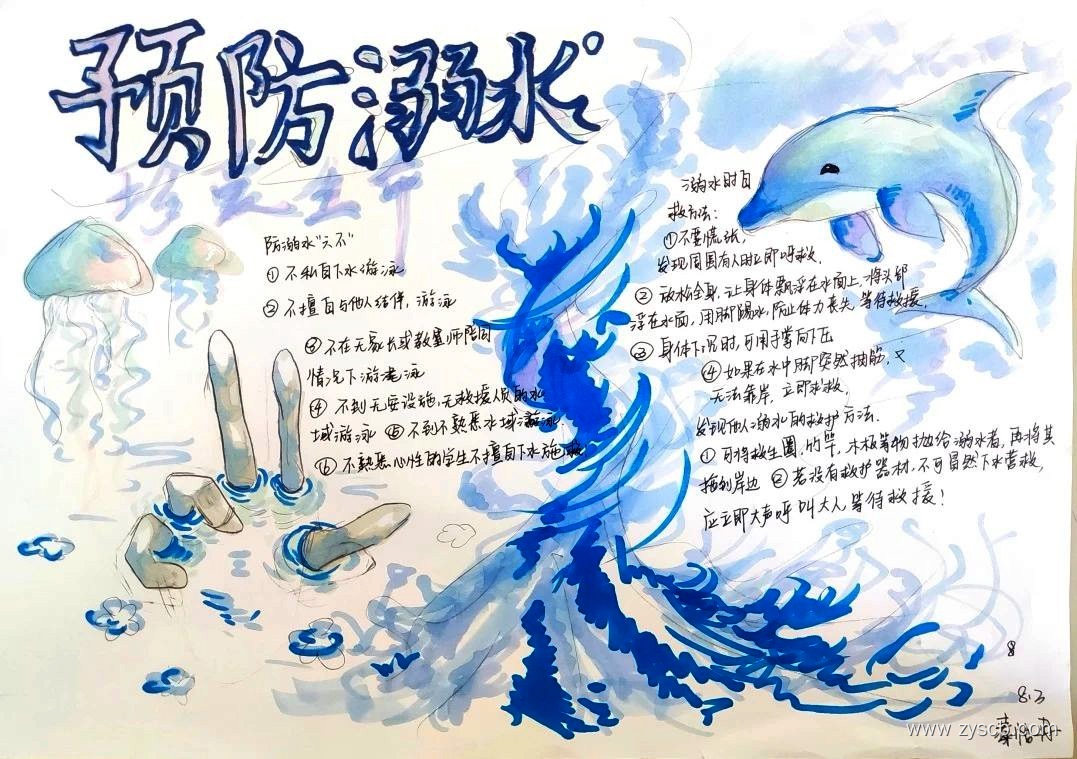 预防溺水
珍爱生命
防溺水"六不"
① 不私自下水游泳
② 不擅自与他人结伴，游泳
③ 不在无家长或教师陪同
情况下游泳
④ 不到无安设施，无救援人员的水
域游泳 ⑤ 不到不熟悉水域游泳
⑥ 不熟悉心性的学生不擅自下水施救
溺水时自
救方法：
①不要慌张，
发现周围有人时立即呼救，
② 放松全身，让身体飘浮在水面上，将头部
浮在水面，用脚踢水，防止体力丧失，等待救援，
③ 身体下沉时，可用手掌向下压
④ 如果在水中脚突然抽筋，又
无法靠岸，立即求救，
发现他人溺水的救护方法．
① 可将救生圈，竹竿，木板等物抛给溺水者，再将其
拖到岸边 ② 若没有救护器材，不可冒然下水营救，
应立即大声呼叫大人等待救援！
8
8.3
www.zyscb.com